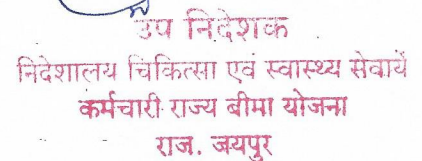 उप निदेशक
निदेशालय चिकित्सा एवं स्वास्थ्य सेवायें
कर्मचारी राज्य बीमा योजना
राज. जयपुर